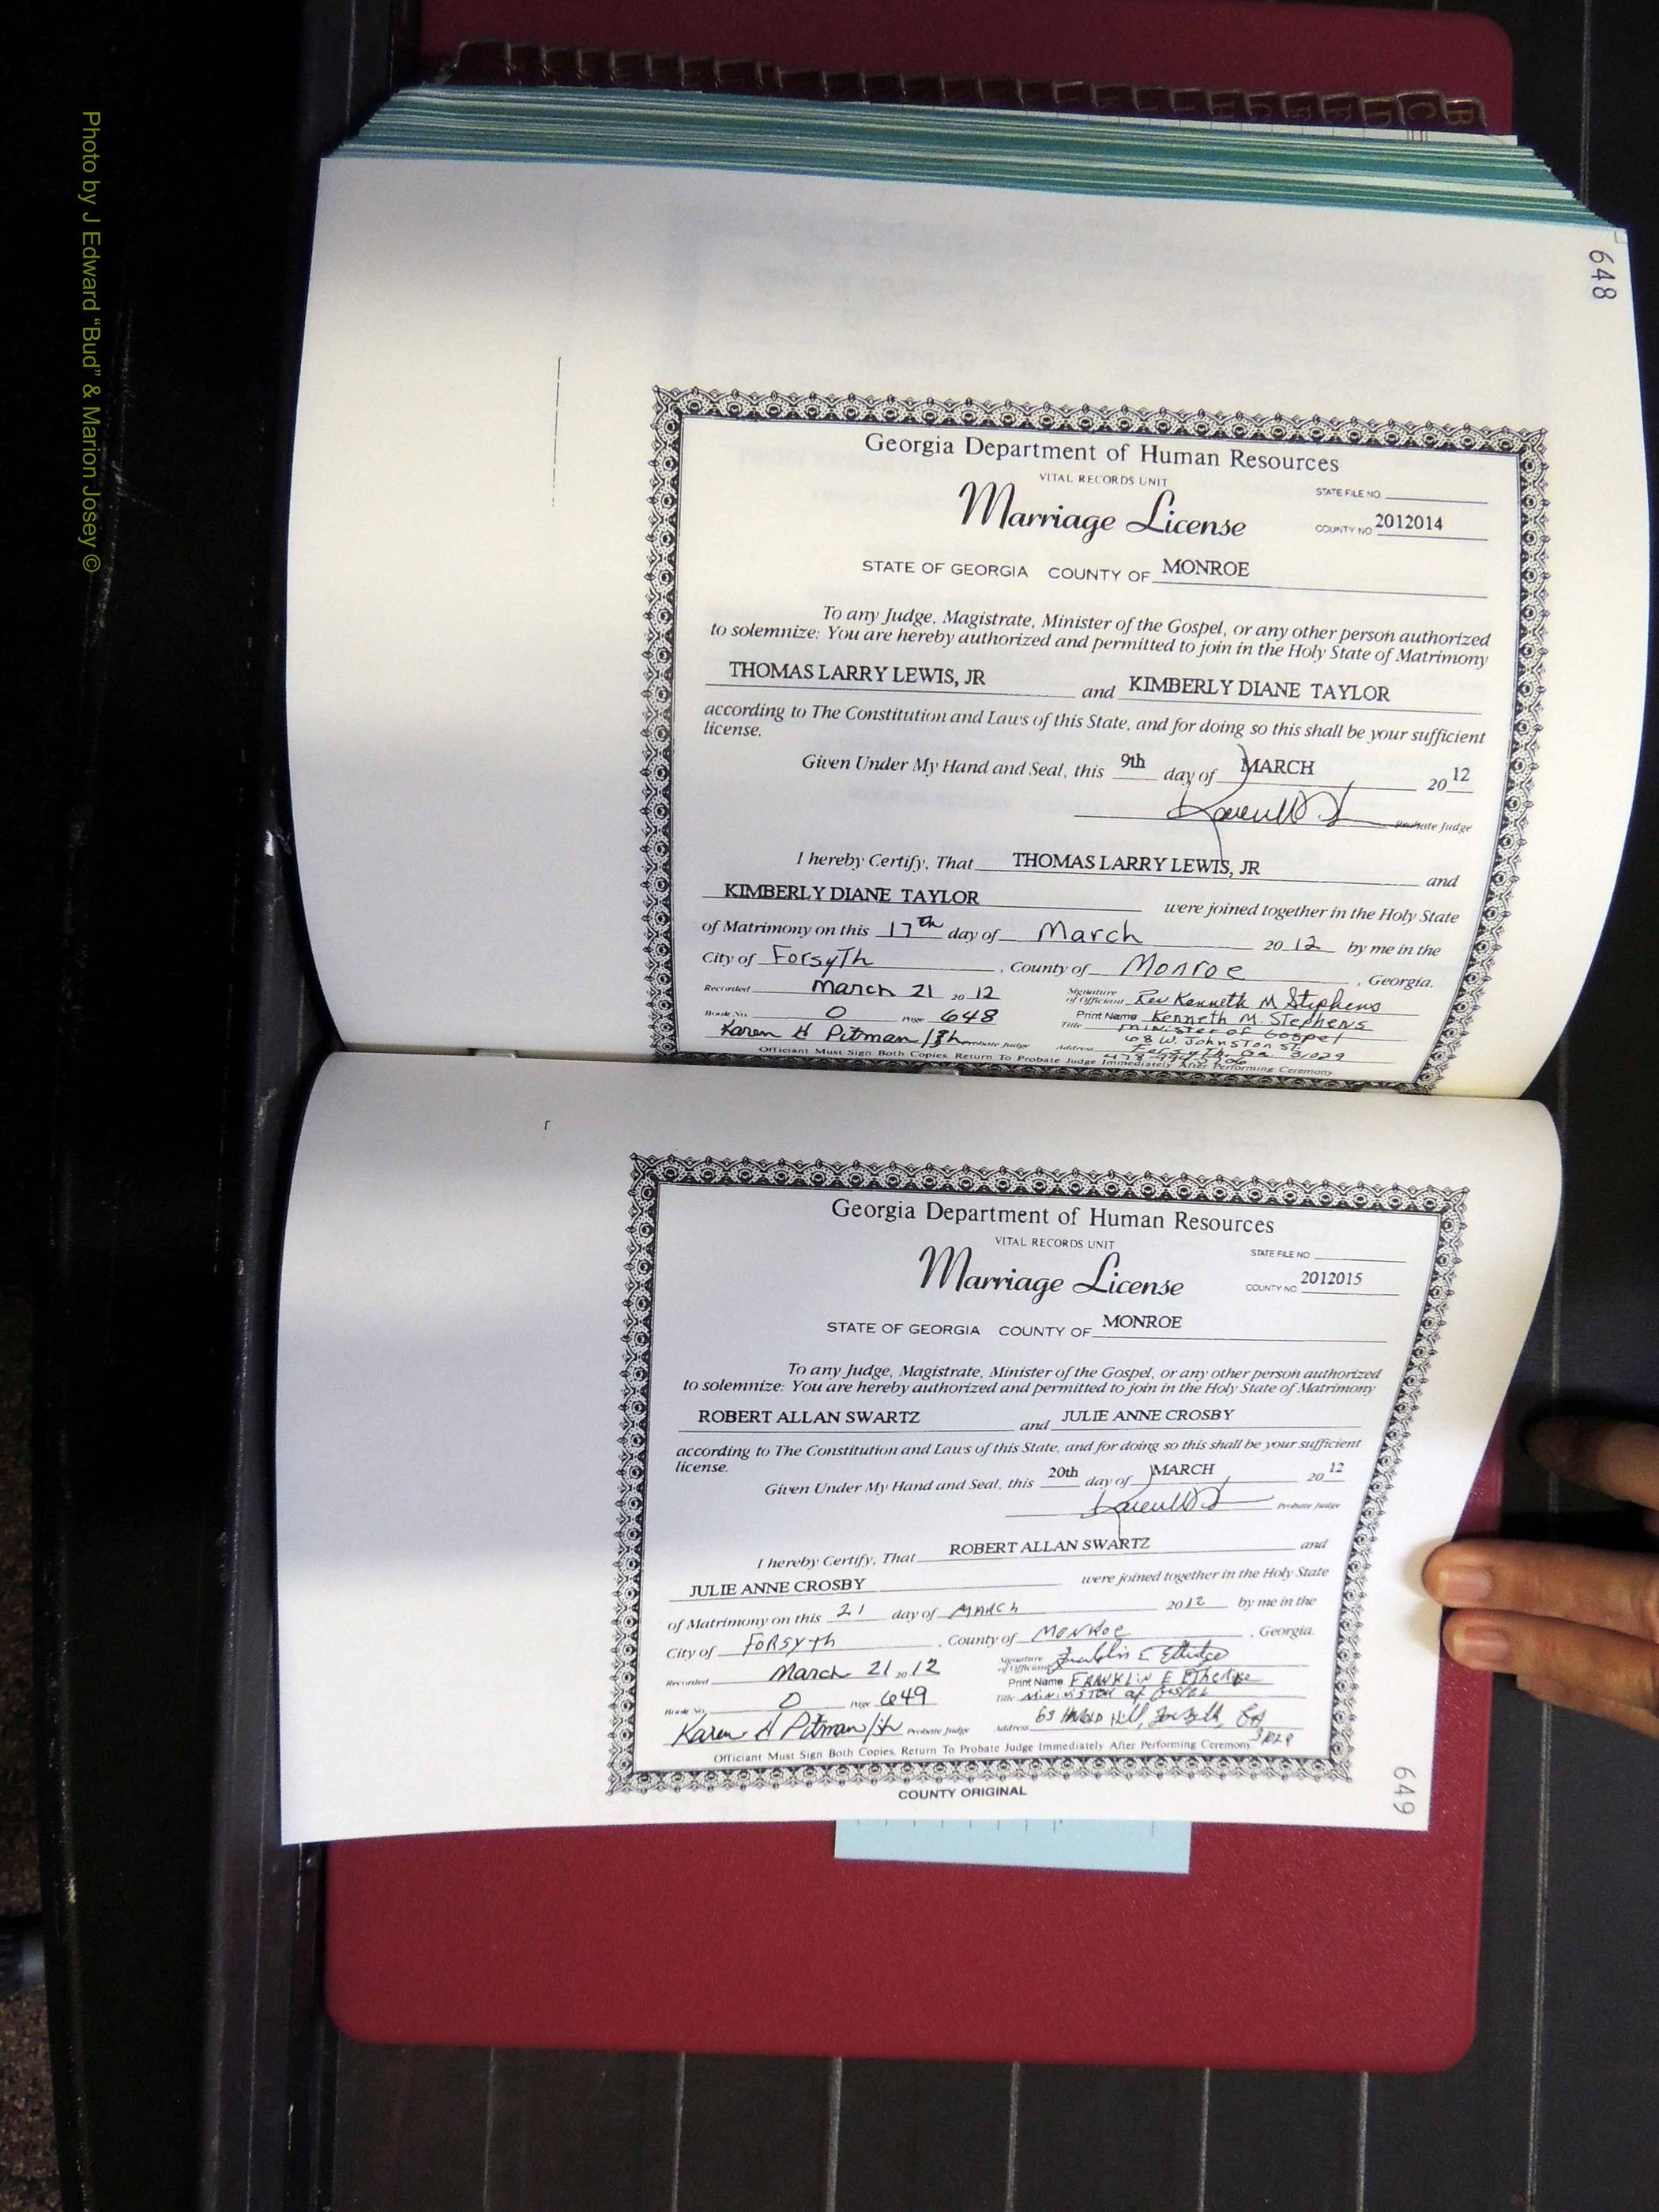 Photo by J Edward “Bud” & Marion Josey ©
648
Georgia Department of Human Resources
VITAL RECORDS UNIT
Marriage License
STATE FILE NO.
COUNTY NO 2012014
STATE OF GEORGIA COUNTY OF MONROE
To any Judge, Magistrate, Minister of the Gospel, or any other person authorized
to solemnize: You are hereby authorized and permitted to join in the Holy State of Matrimony
THOMAS LARRY LEWIS, JR and KIMBERLY DIANE TAYLOR
according to The Constitution and Laws of this State, and for doing so this shall be your sufficient
license.
Given Under My Hand and Seal, this 9th day of MARCH 20 12
Probate Judge
I hereby Certify, That THOMAS LARRY LEWIS, JR and
KIMBERLY DIANE TAYLOR were joined together in the Holy State
of Matrimony on this 17th day of March 20 12 by me in the
City of Forsyth, County of Monroe, Georgia.
Recorded March 21 20 12 Signature of Officiant Rev Kenneth M Stephens
Book No. O Page 648 Print Name Kenneth M. Stephens
Title minister of Gospel
Karen H Pitman Probate Judge Address 68 W. Johnston St
Forsyth, Ga. 31029
Officiant Must Sign Both Copies. Return To Probate Judge Immediately After Performing Ceremony
Georgia Department of Human Resources
VITAL RECORDS UNIT
Marriage License
STATE FILE NO
COUNTY NO 2012015
STATE OF GEORGIA COUNTY OF MONROE
To any Judge, Magistrate, Minister of the Gospel, or any other person authorized
to solemnize: You are hereby authorized and permitted to join in the Holy State of Matrimony
ROBERT ALLAN SWARTZ and JULIE ANNE CROSBY
according to The Constitution and Laws of this State, and for doing so this shall be your sufficient
license.
Given Under My Hand and Seal, this 20th day of MARCH 20 12
Probate Judge
I hereby Certify, That ROBERT ALLAN SWARTZ and
JULIE ANNE CROSBY were joined together in the Holy State
of Matrimony on this 21 day of MARCh 2012 by me in the
City of FORSyth, County of MONRoe, Georgia.
Recorded March 21 20 12 Signature of Officiant Franklin E
Book No. O Page 649 Print Name FRANKLIN E
Title MINISTER of Gospel
Karen H Pitman Probate Judge Address 63 Hill, Forsyth, GA
Officiant Must Sign Both Copies. Return To Probate Judge Immediately After Performing Ceremony
COUNTY ORIGINAL
649